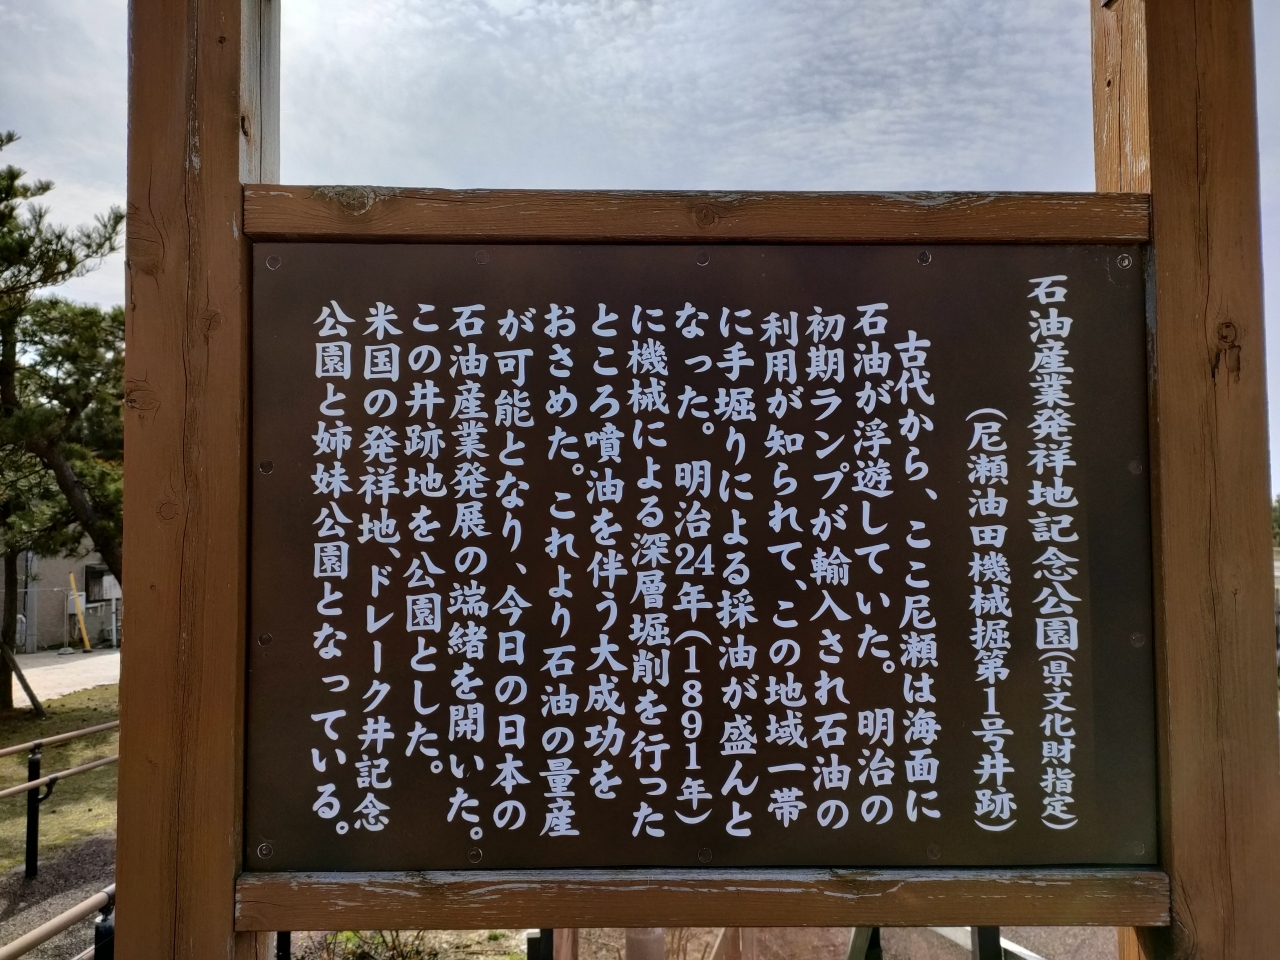 石油産業発祥地記念公園(県文化財指定)
(尼瀬油田機械掘第1号井跡)
古代から、ここ尼瀬は海面に
石油が浮遊していた。 明治の
初期ランプが輸入され石油の
利用が知られて、この地域一帯
に手堀りによる採油が盛んと
なった。 明治24年(1891年)
に機械による深層堀削を行った
ところ噴油を伴う大成功を
おさめた。これより石油の量産
が可能となり、今日の日本の
石油産業発展の端緒を開いた。
この井跡地を公園とした。
米国の発祥地、ドレーク井記念
公園と姉妹公園となっている。